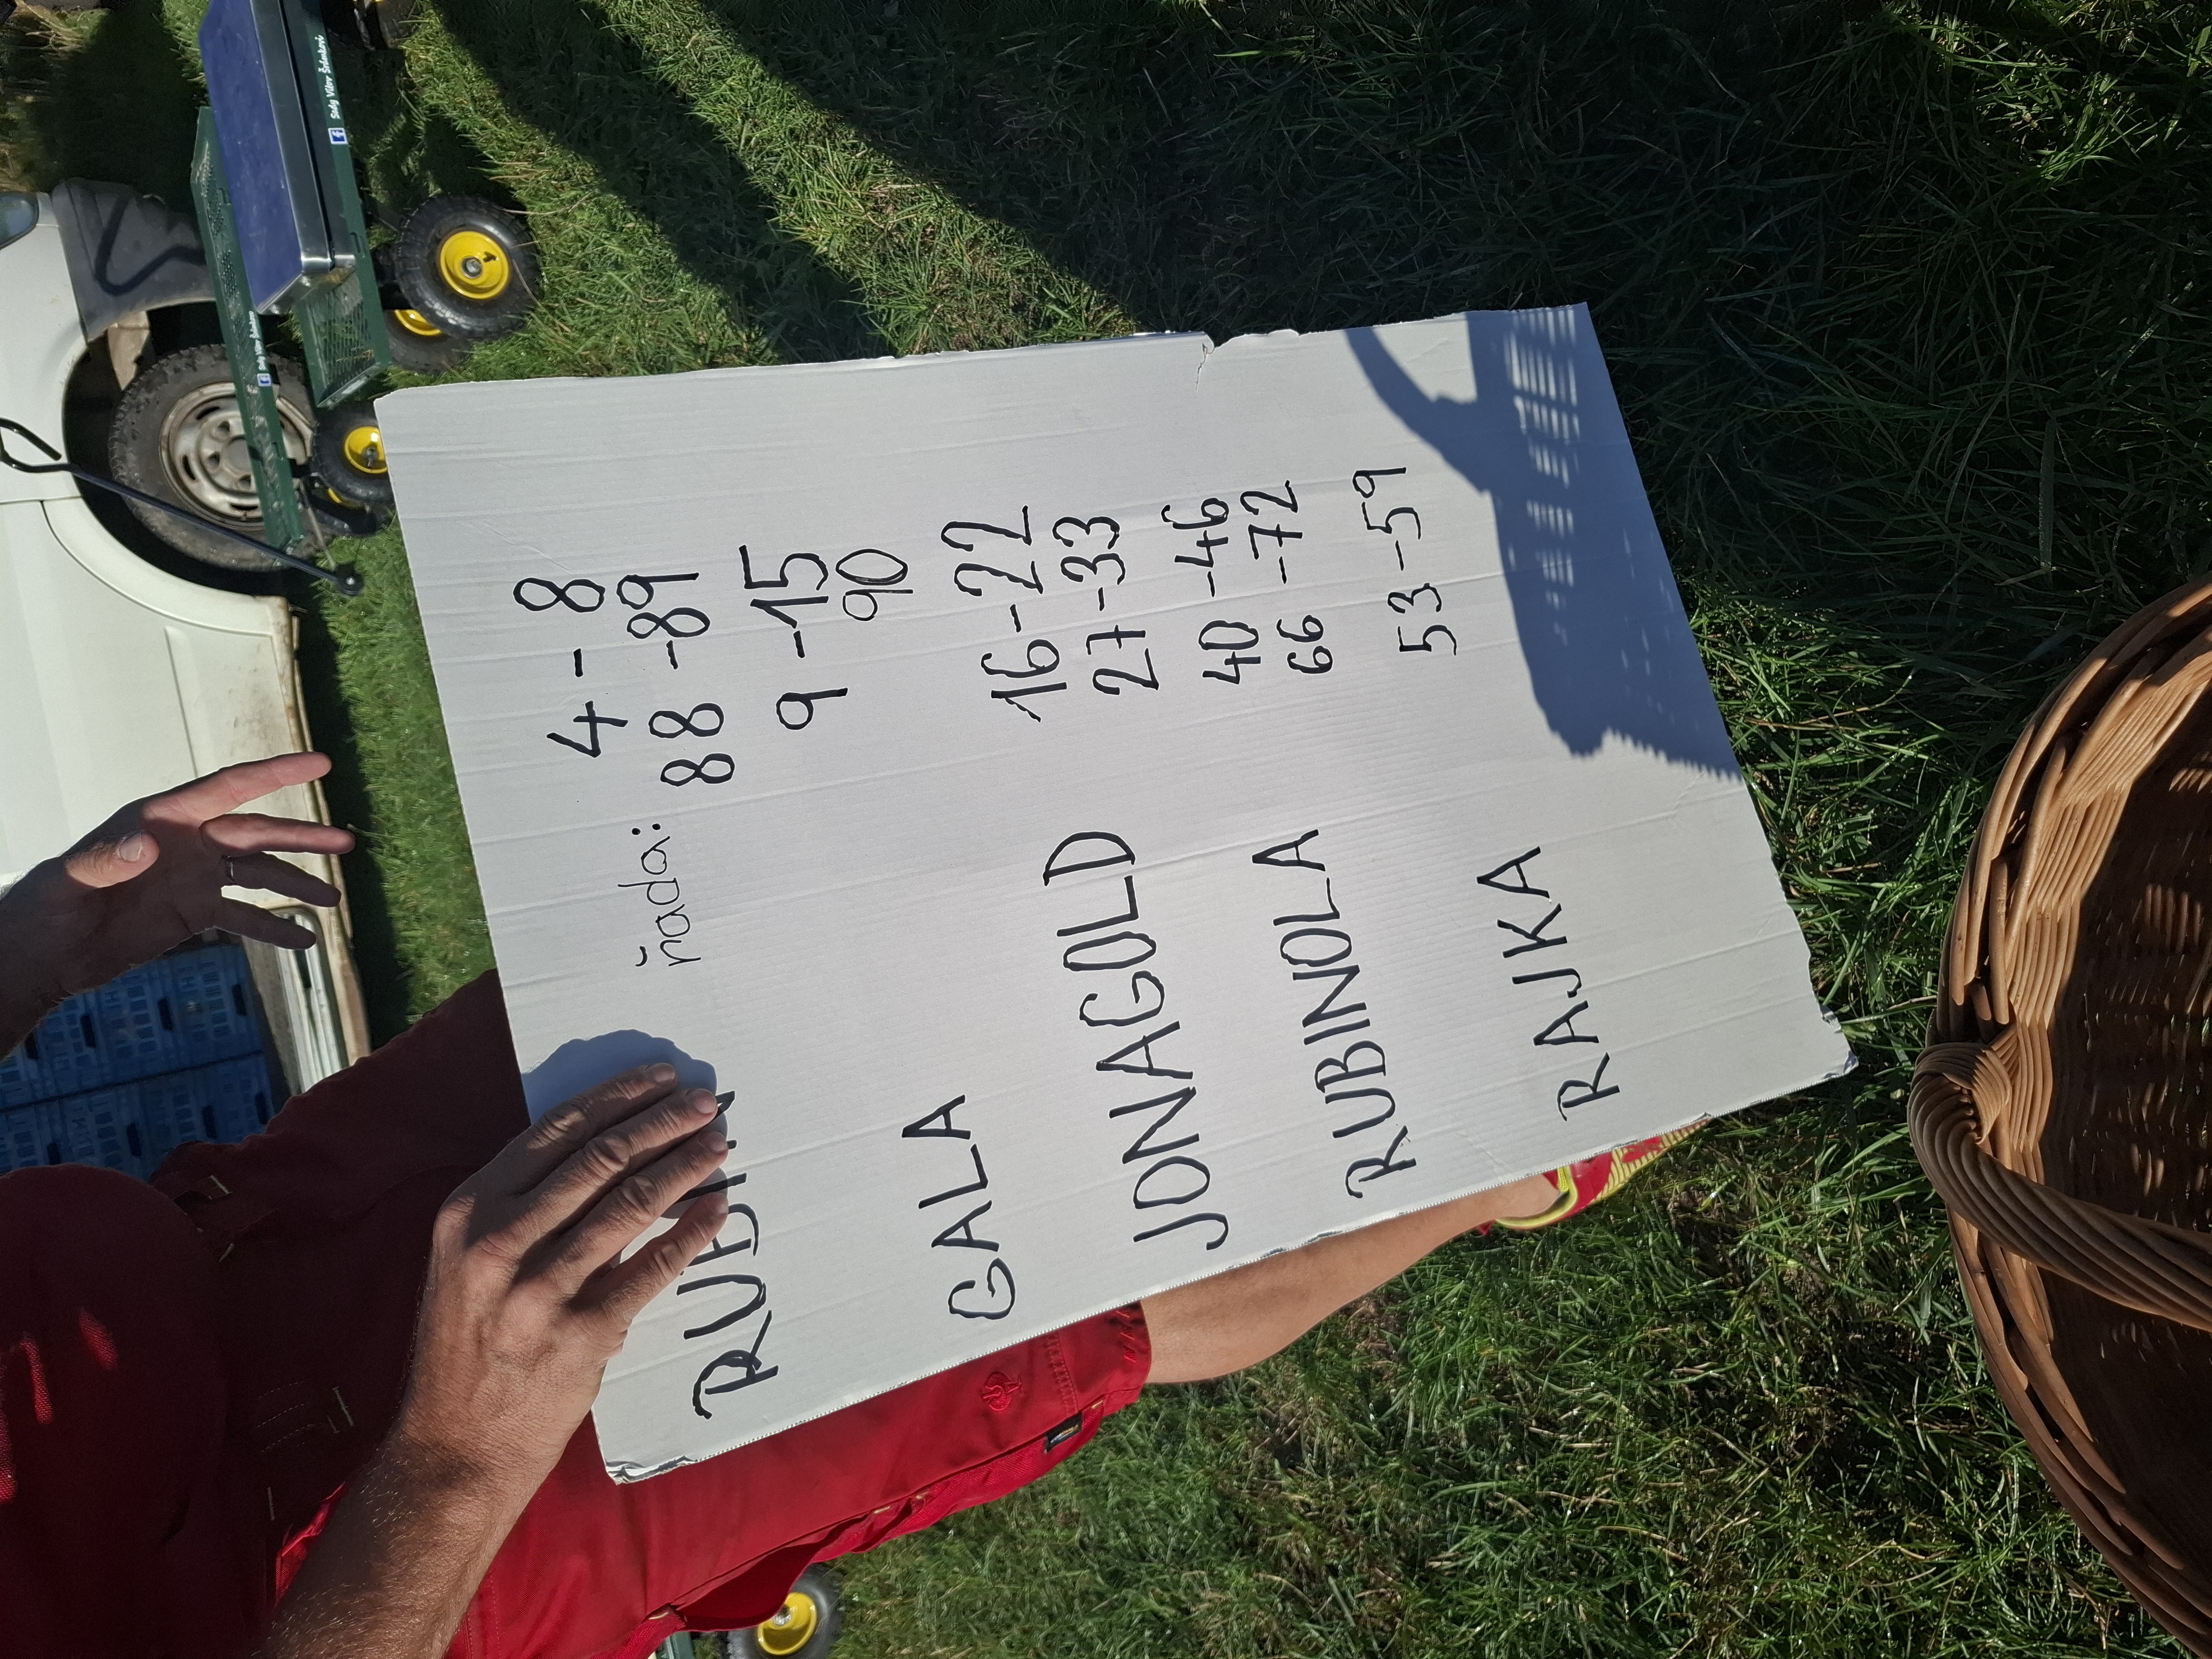 RUBÍN řada: 4 - 8
88 - 89
GALA 9 - 15
90
JONAGOLD 16 - 22
27 - 33
RUBINOLA 40 - 46
66 - 72
RAJKA 53 - 59
Sady Vítov Šidákovi